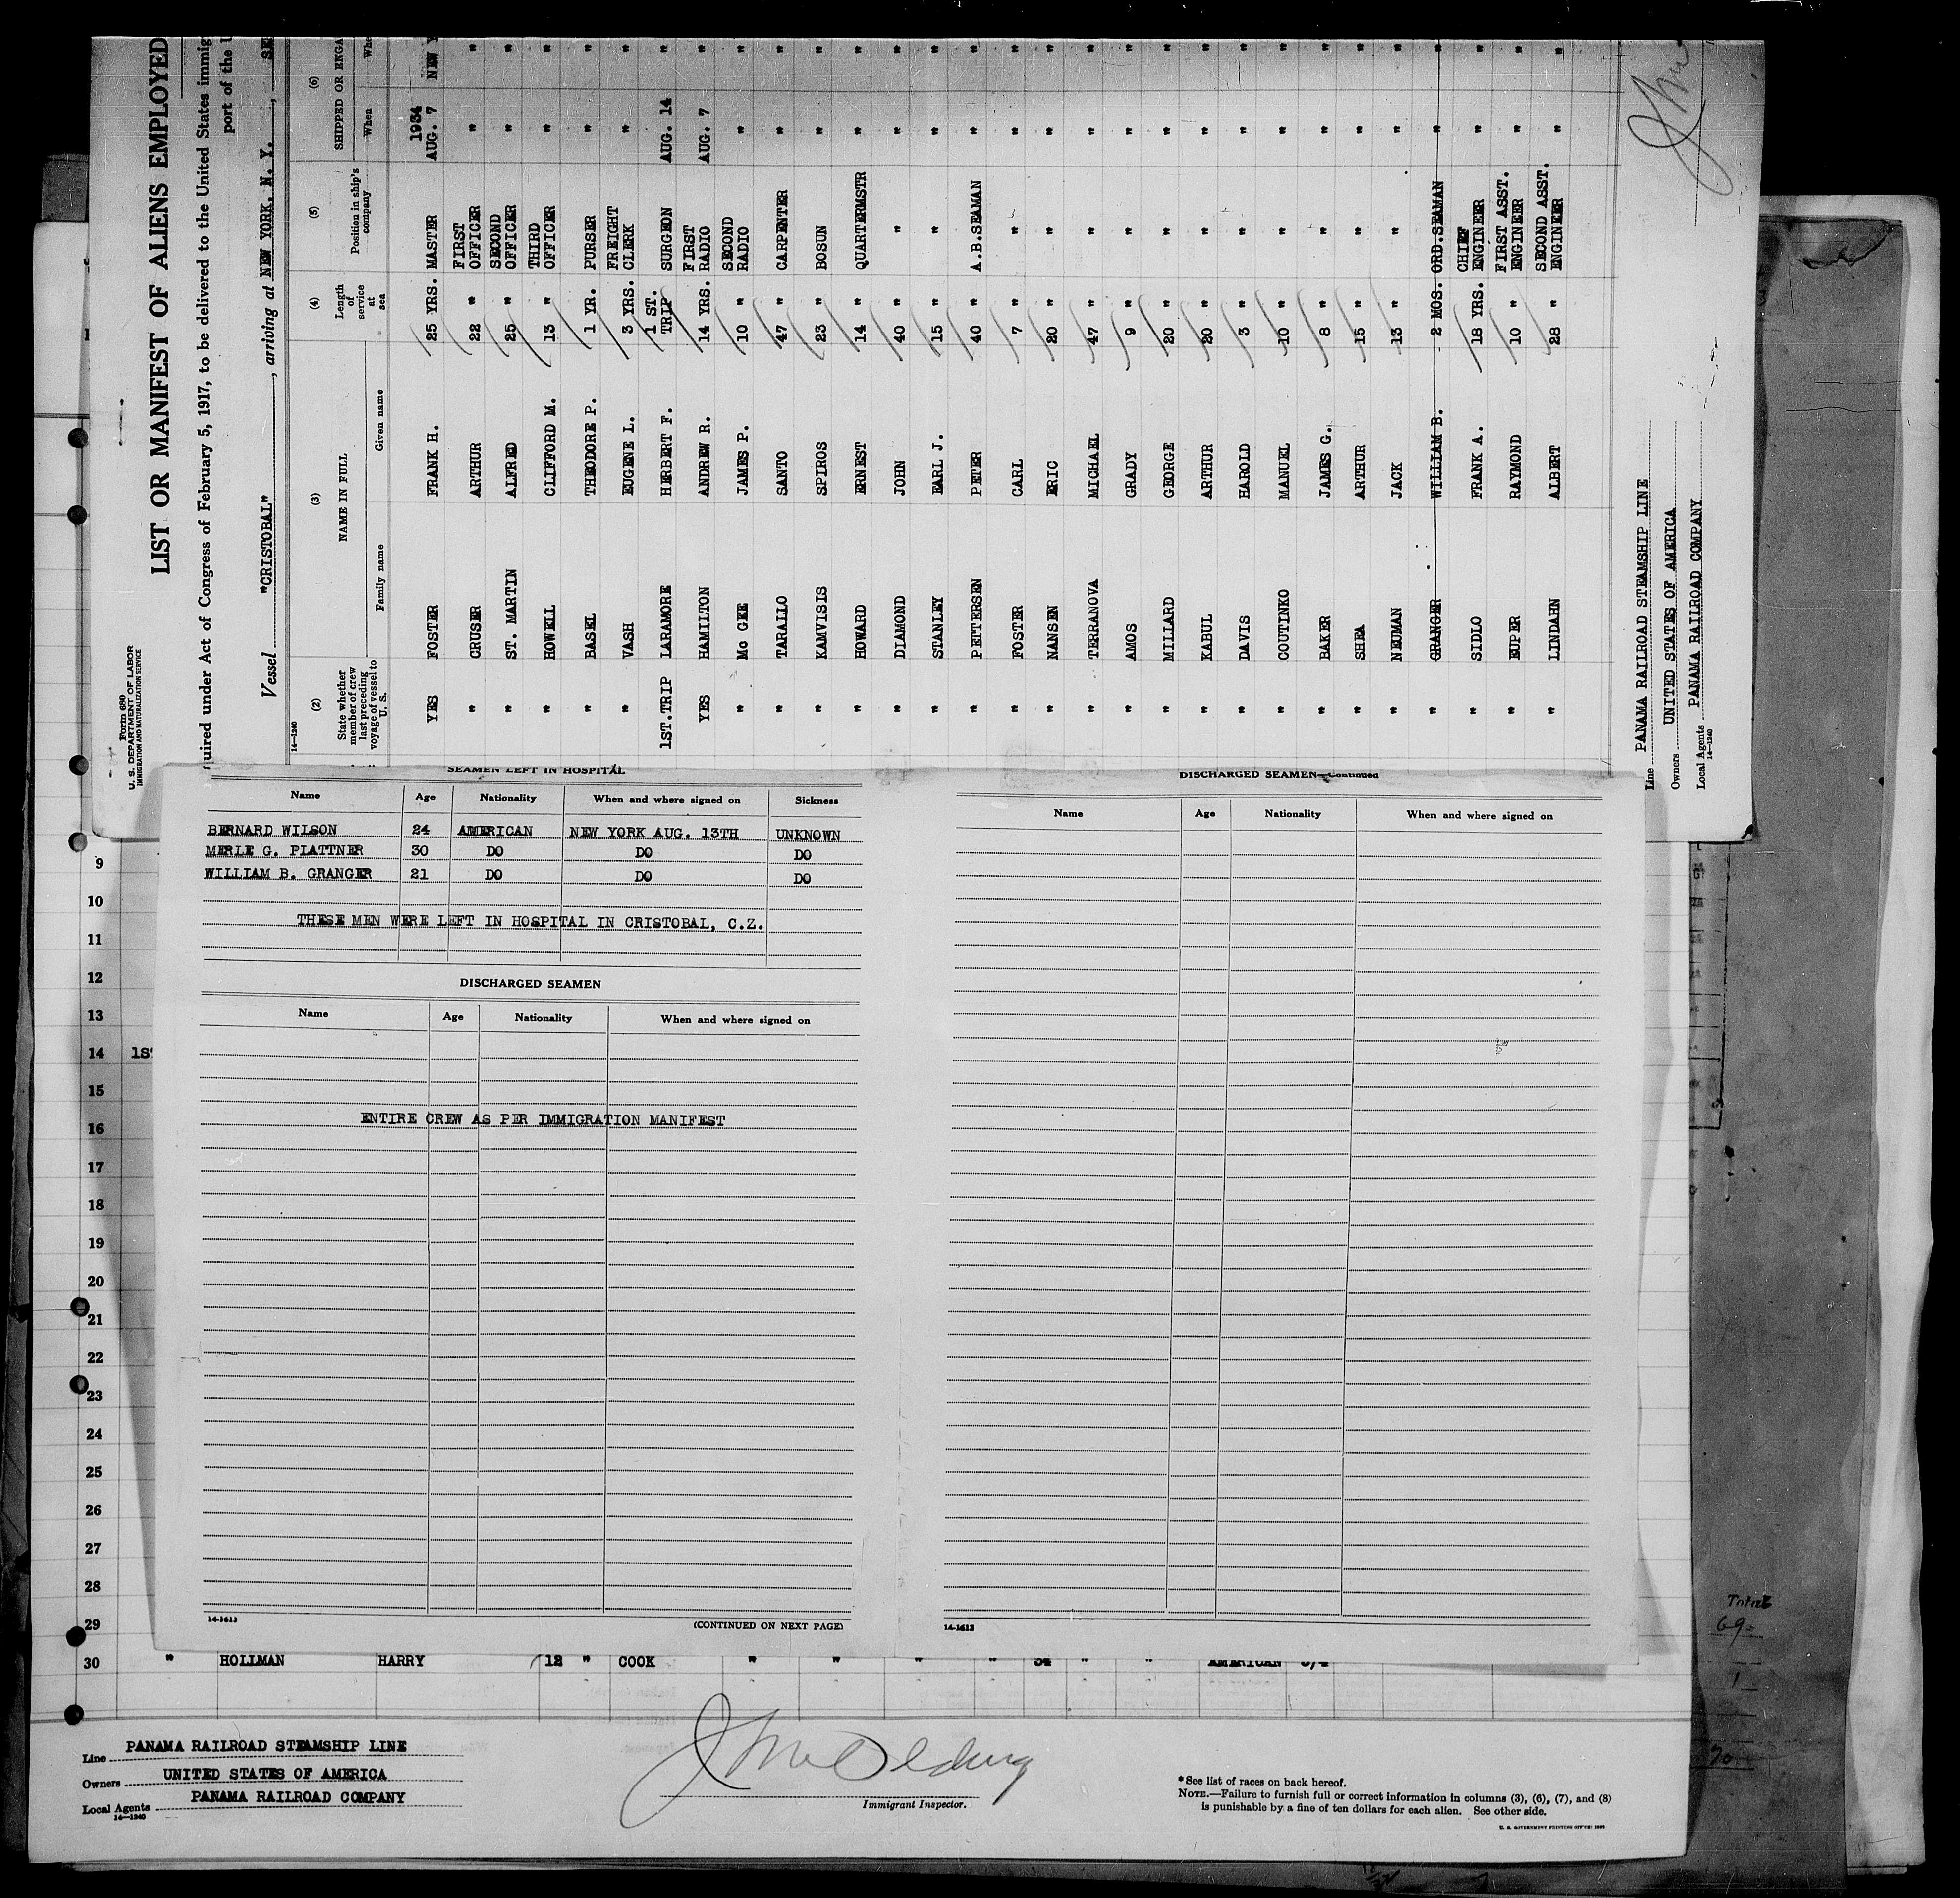 Form 680
U. S. DEPARTMENT OF LABOR
IMMIGRATION AND NATURALIZATION SERVICE
LIST OR MANIFEST OF ALIENS EMPLOYED
quired under Act of Congress of February 5, 1917, to be delivered to the United States immig
port of the U
Vessel "CRISTOBAL", arriving at NEW YORK, N. Y.,
14—1240
(2) (3) (4) (5) (6)
State whether member of crew last preceding voyage of vessel to U. S. NAME IN FULL Length of service at sea Position in ship's company SHIPPED OR ENGA
Family name Given name When Whe
1934
YES FOSTER FRANK H. 25 YRS. MASTER AUG. 7 NEW Y
" CRUSER ARTHUR 22 " FIRST OFFICER " "
" ST. MARTIN ALFRED 25 " SECOND OFFICER " "
" HOWELL CLIFFORD M. 13 " THIRD OFFICER " "
" BASEL THEODORE P. 1 YR. PURSER " "
" VASH EUGENE L. 3 YRS. FREIGHT CLERK " "
1ST.TRIP LARAMORE HERBERT F. 1 ST. TRIP SURGEON AUG. 14 "
YES HAMILTON ANDREW R. 14 YRS. FIRST RADIO AUG. 7 "
" Mc GEE JAMES P. 10 " SECOND RADIO " "
" TARALLO SANTO 47 " CARPENTER " "
" KAMVISIS SPIROS 23 " BOSUN " "
" HOWARD ERNEST 14 " QUARTERMSTR " "
" DIAMOND JOHN 40 " " " "
" STANLEY EARL J. 15 " " " "
" PETTERSEN PETER 40 " A.B.SEAMAN " "
" FOSTER CARL 7 " " " "
" NANSEN ERIC 20 " " " "
" TERRANOVA MICHAEL 47 " " " "
" AMOS GRADY 9 " " " "
" MILLARD GEORGE 20 " " " "
" KABUL ARTHUR 20 " " " "
" DAVIS HAROLD 3 " " " "
" COUTINKO MANUEL 10 " " " "
" BAKER JAMES G. 8 " " " "
" SHEA ARTHUR 15 " " " "
" NEUMAN JACK 13 " " " "
" GRANGER WILLIAM B. 2 MOS. ORD.SEAMAN " "
" SIDLO FRANK A. 18 YRS. CHIEF ENGINEER " "
" EUPER RAYMOND 10 " FIRST ASST. ENGINEER " "
" LINDAHN ALBERT 28 " SECOND ASST. ENGINEER " "
Line PANAMA RAILROAD STEAMSHIP LINE
Owners UNITED STATES OF AMERICA
Local Agents PANAMA RAILROAD COMPANY
14—1240
SEAMEN LEFT IN HOSPITAL
Name Age Nationality When and where signed on Sickness
BERNARD WILSON 24 AMERICAN NEW YORK AUG. 13TH UNKNOWN
MERLE G. PLATTNER 30 DO DO DO
WILLIAM B. GRANGER 21 DO DO DO
THESE MEN WERE LEFT IN HOSPITAL IN CRISTOBAL, C.Z.
DISCHARGED SEAMEN
Name Age Nationality When and where signed on
ENTIRE CREW AS PER IMMIGRATION MANIFEST
14-1613 (CONTINUED ON NEXT PAGE)
DISCHARGED SEAMEN—Continued
Name Age Nationality When and where signed on
14-1613
9
10
11
12
13
14 1S
15
16
17
18
19
20
21
22
23
24
25
26
27
28
29
30 " HOLLMAN HARRY 12 " COOK " " " " 34 " " AMERICAN
Line PANAMA RAILROAD STEAMSHIP LINE
Owners UNITED STATES OF AMERICA
Local Agents PANAMA RAILROAD COMPANY
14—1240
Immigrant Inspector.
*See list of races on back hereof.
NOTE.—Failure to furnish full or correct information in columns (3), (6), (7), and (8)
is punishable by a fine of ten dollars for each alien. See other side.
69
1
70